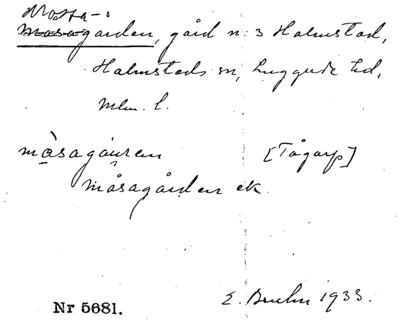 Mossa-
Masagården, gård n: 3 Halmstad,
Halmstads sn, Luggude hd,
Mlm. l.
màsagáuren [Tågarp]
måsagården ek.
Nr 5681. E. Bruhn 1933.